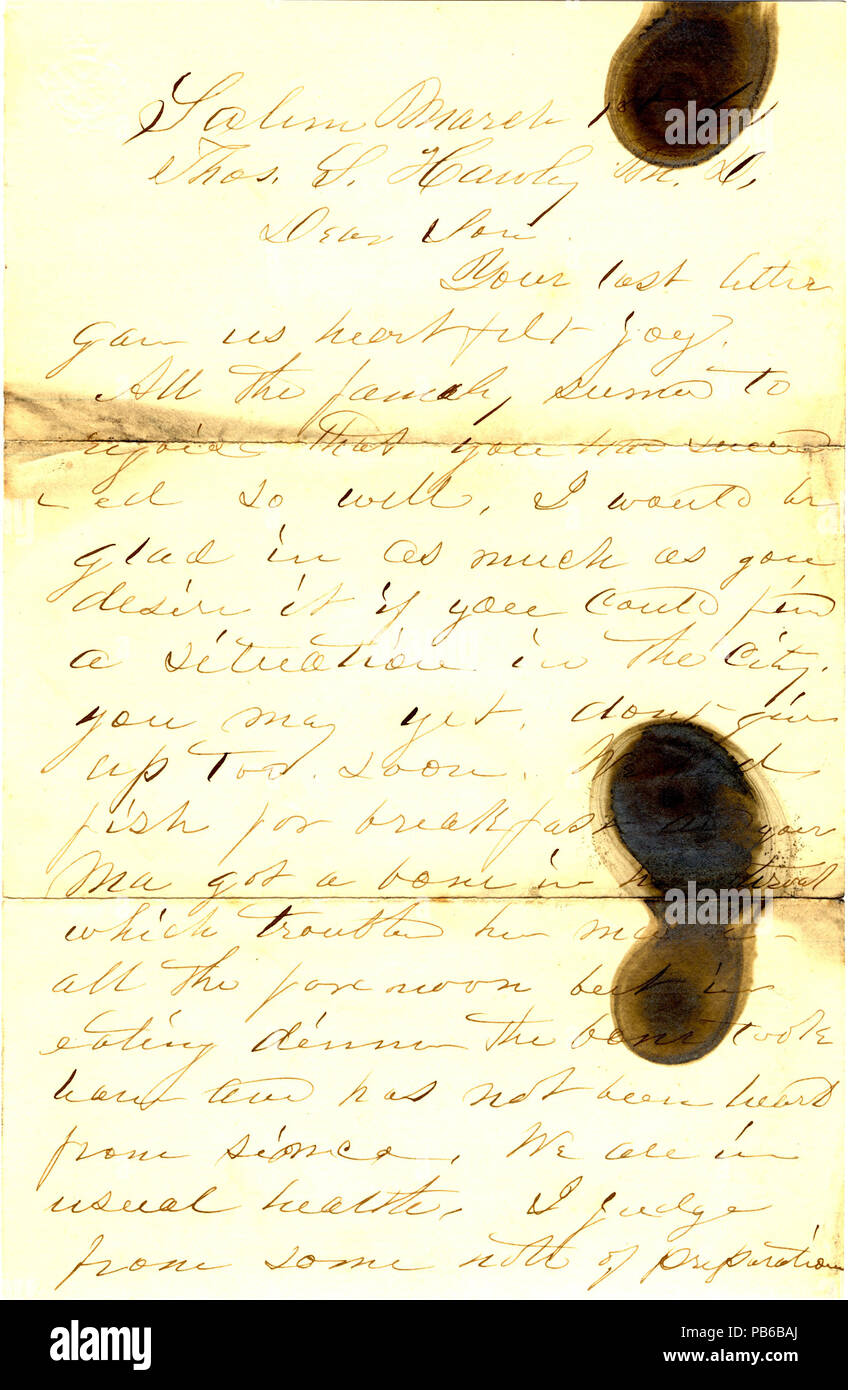 Salem March 1st
Thos. S. Hawley M. D.
Dear Son
Your last letter
gave us heart felt joy.
All the family seemed to
rejoice that you had succeed
-ed so well, I would be
glad in as much as you
desire it if you could find
a situation in the City.
you may yet, dont give
up too soon. We had
fish for breakfast and your
Ma got a bone in her throat
which troubled her
all the forenoon but in
eating dinner the bone took
and has not been heard
from since. We are in
usual health. I judge
from some note of preparation
alamy
Image ID: PB6BAJ
www.alamy.com